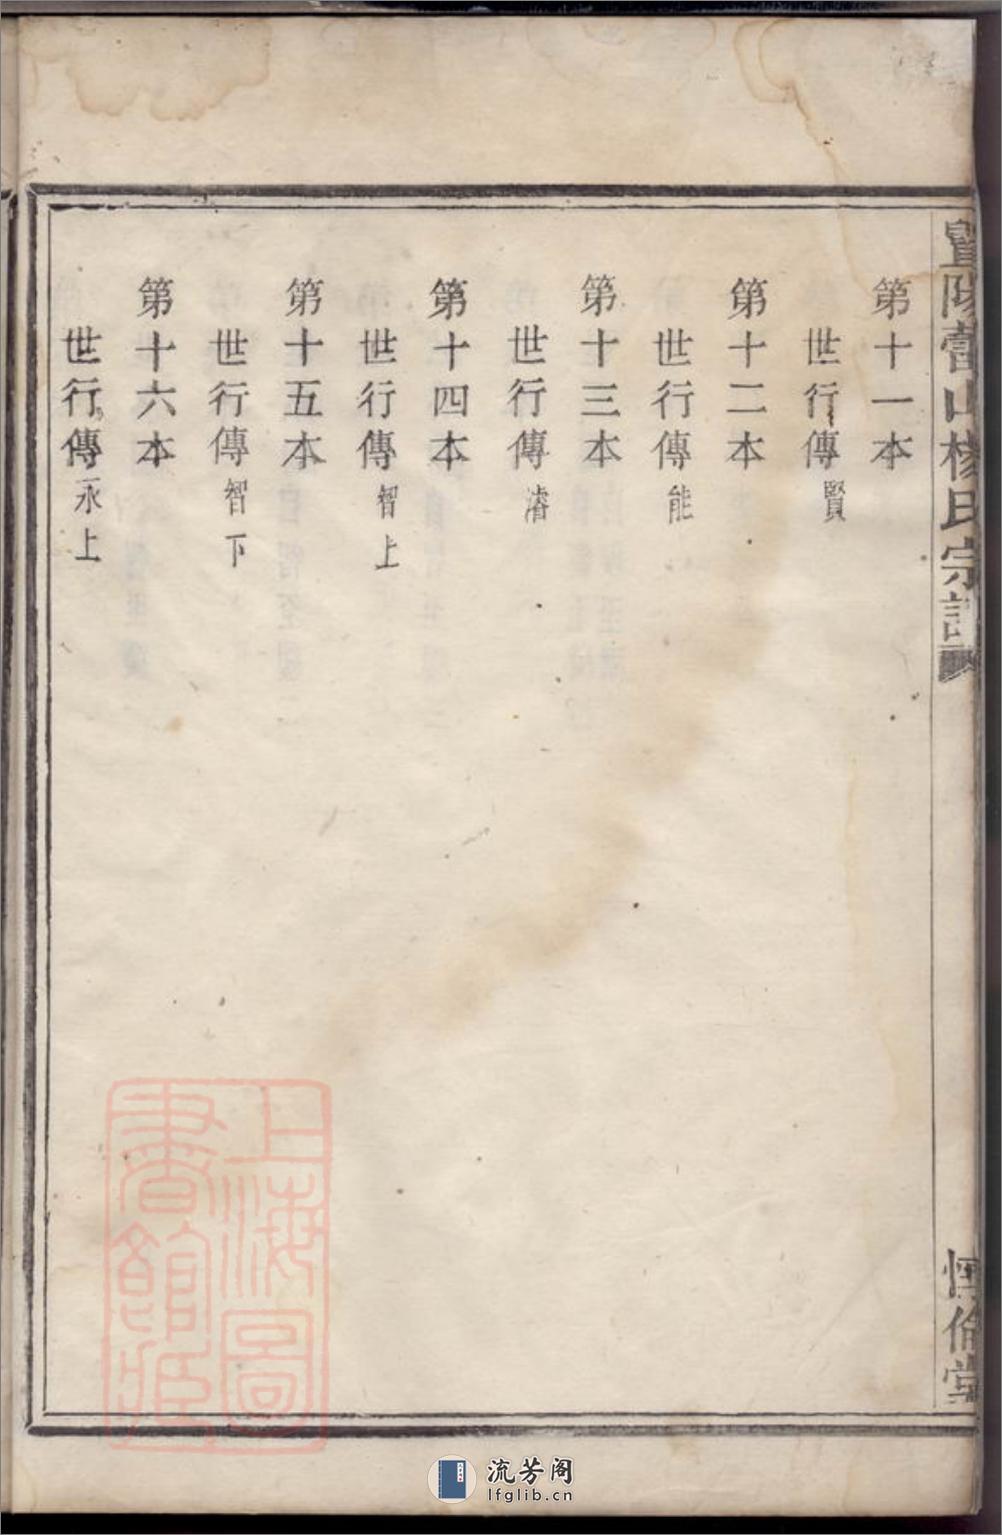 暨陽營山楊氏宗譜
惇倫堂
第十一本
世行傳賢
第十二本
世行傳能
第十三本
世行傳濬
第十四本
世行傳智上
第十五本
世行傳智下
第十六本
世行傳永上
上海圖
書館藏
流芳阁
lfglib.cn